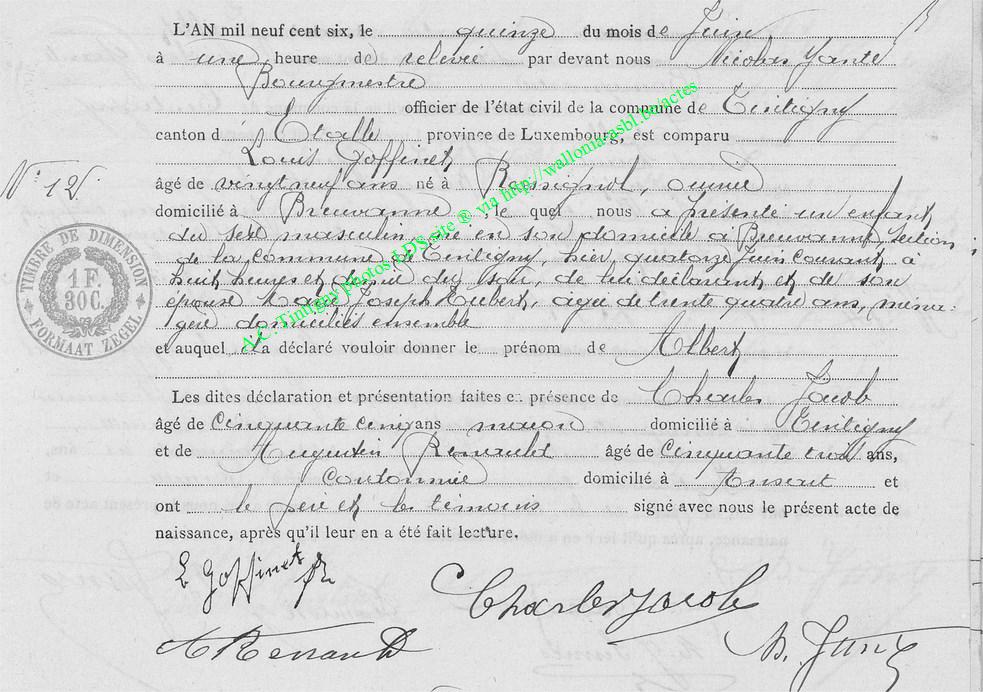 L'AN mil neuf cent six, le quinze du mois de Juin
à une heure de relevée par devant nous Nicolas
Bourgmestre
officier de l'état civil de la commune de Tintigny
canton d' Etalle province de Luxembourg, est comparu
Louis Goffinet
N° 12
âgé de vingt neuf ans né à Rossignol, ouvrier
domicilié à Breuvanne, le quel nous a présenté un enfant
du sexe masculin, né en son domicile à Breuvanne, section
de la commune de Tintigny, hier quatorze Juin courant, à
huit heures et demie du soir, de lui déclarant et de son
épouse Marie Joseph Hubert, âgée de trente quatre ans, ména-
gère domiciliés ensemble
et auquel il a déclaré vouloir donner le prénom de Albert
Les dites déclaration et présentation faites en présence de Charles Jacob
âgé de Cinquante cinq ans maçon domicilié à Tintigny
et de Augustin Renauld âgé de Cinquante trois ans,
Cordonnier domicilié à Ansart et
ont le père et les témoins signé avec nous le présent acte de
naissance, après qu'il leur en a été fait lecture.
L Goffinet
Charles Jacob
A Renauld
TIMBRE DE DIMENSION
1 F.
30 C.
FORMAAT ZEGEL
A.C. Tintigny Photos LDS site ® via http://wallonia-asbl.be/actes